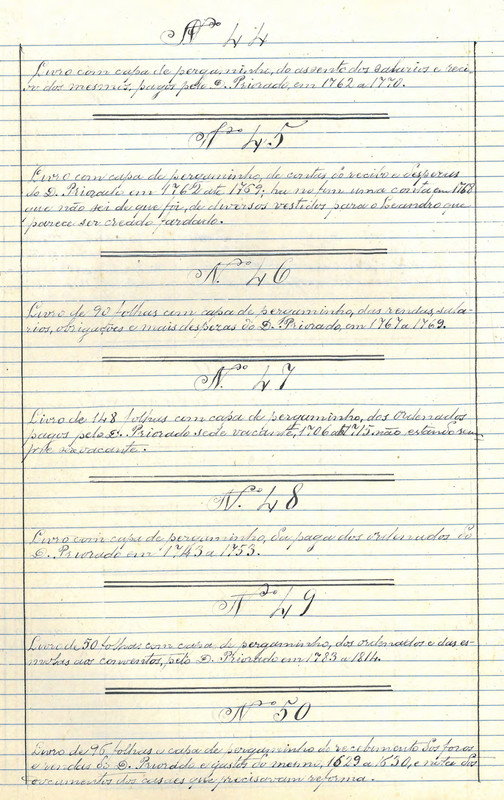 N.º 44
Livro com capa de perguminho, do assento dos salarios e reci-
vo dos mesmos, pagos pelo D. Priorado, em 1762 a 1770.
N.º 45
Livro com capa de perguminho, de contas, do recibo e desperas
do D. Priorado em 1762 até 1769; ha no fim uma conta em 1768
que não sei de que foi, de diversos vestidos para o Leandro que
parece ser creado fardado.
N.º 46
Livro de 90 folhas com capa de perguminho, das rendas, sala-
rios, obrigações e mais desperas do D. Priorado, em 1767 a 1769.
N.º 47
Livro de 148 folhas com capa de perguminho, dos ordenados
pagos pelo D. Priorado sede vacante, 1706 a 1715, não estando sem-
pre vacante.
N.º 48
Livro com capa de perguminho, da paga dos ordenados do
D. Priorado em 1743 a 1753.
N.º 49
Livro de 50 folhas com capa de perguminho, dos ordenados e das es-
molas aos conventos, pelo D. Priorado em 1783 a 1814.
N.º 50
Livro de 96 folhas e capa de perguminho de recebimento dos foros
e rendas do D. Priorado e gastos do mesmo, 1629 a 1630, e nota dos
documentos dos casaes que precisavam reforma.